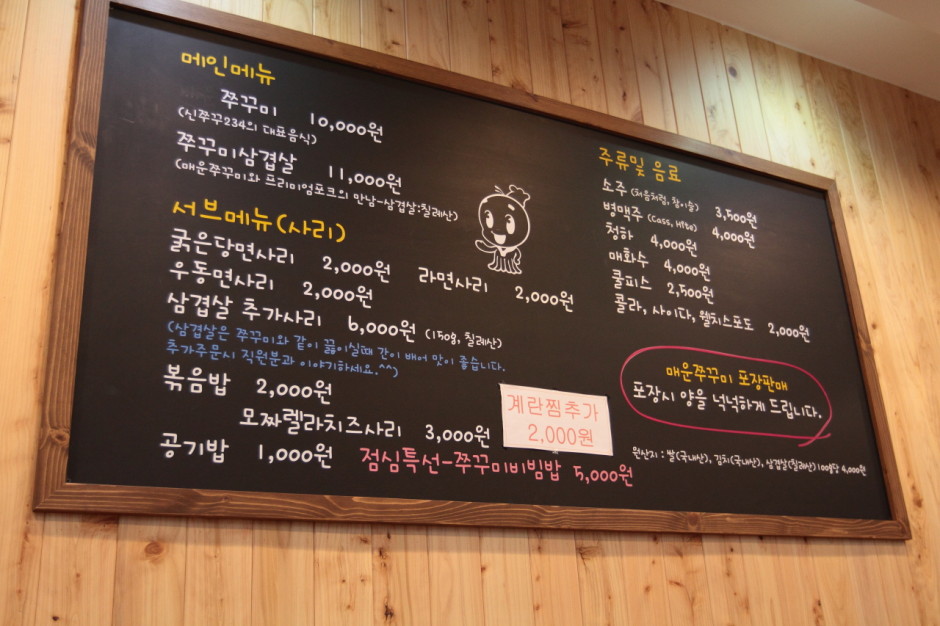 메인메뉴
쭈꾸미 10,000원
(신쭈꾸234의 대표음식)
쭈꾸미삼겹살 11,000원
(매운쭈꾸미와 프리미엄포크의 만남-삼겹살:칠레산)
서브메뉴(사리)
굵은당면사리 2,000원 라면사리 2,000원
우동면사리 2,000원
삼겹살 추가사리 6,000원 (150g, 칠레산)
(삼겹살은 쭈꾸미와 같이 끓이실때 간이 배어 맛이 좋습니다.
추가주문시 직원분과 이야기하세요.^^)
볶음밥 2,000원
모짜렐라치즈사리 3,000원
공기밥 1,000원
점심특선-쭈꾸미비빔밥 5,000원
계란찜추가
2,000원
주류및 음료
소주 (처음처럼, 참이슬) 3,500원
병맥주 (Cass, Hite) 4,000원
청하 4,000원
매화수 4,000원
쿨피스 2,500원
콜라, 사이다, 웰치스포도 2,000원
매운쭈꾸미 포장판매
포장시 양을 넉넉하게 드립니다.
원산지 : 쌀(국내산), 김치(국내산), 삼겹살(칠레산) 100g당 4,000원